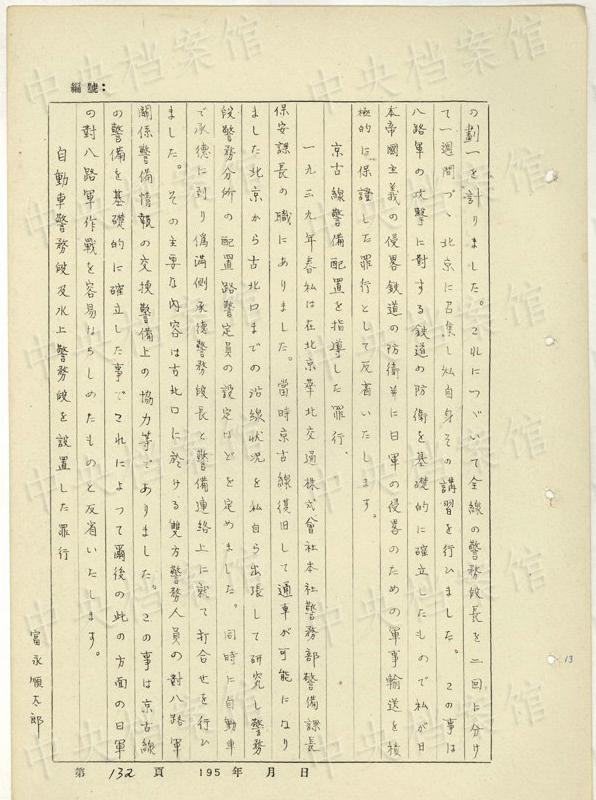 編號:
の劃一を計りました。これにつづいて全線の警務段長を二回に分け
て一週間づゝ北京に召集し私自身その講習を行ひました。この事は
八路軍の攻撃に対する鉄道の防衛を基礎的に確立したもので私が日
本帝國主義の侵畧鉄道の防衛並に日軍の侵畧のための軍事輸送を積
極的に保証した罪行として反省いたします。
京古線警備配置を指導した罪行.
一九三九年春私は在北京華北交通株式會社本社警務部警備課長
保安課長の職にありました。當時京古線復旧して通車が可能になり
ました北京から古北口までの沿線状況を私自ら出張して研究し警務
段警務分所の配置路警定員の設定などを定めました。同時に自動車
で承德に到り偽満側承德警務段長と警備連絡上に就て打合せを行ひ
ました。その主要な内容は古北口に於ける雙方警務人員の對八路軍
関係警備情報の交換警備上の協力等でありました。この事は京古線
の警備を基礎的に確立した事でこれによって爾後の此の方面の日軍
の對八路軍作戰を容易ならしめたものと反省いたします。
自動車警務段及水上警務段を設置した罪行
富永順太郎
第 132 頁 195 年 月 日
13
中央档案馆